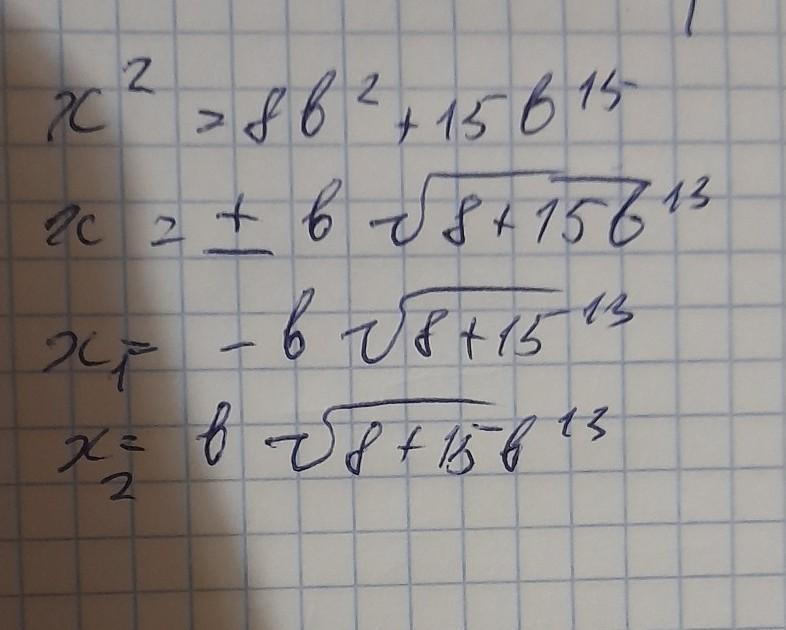 x² = 8b² + 15b¹⁵
x = ± b √8 + 15b¹³
x₁ = - b √8 + 15¹³
x₂ = b √8 + 15b¹³